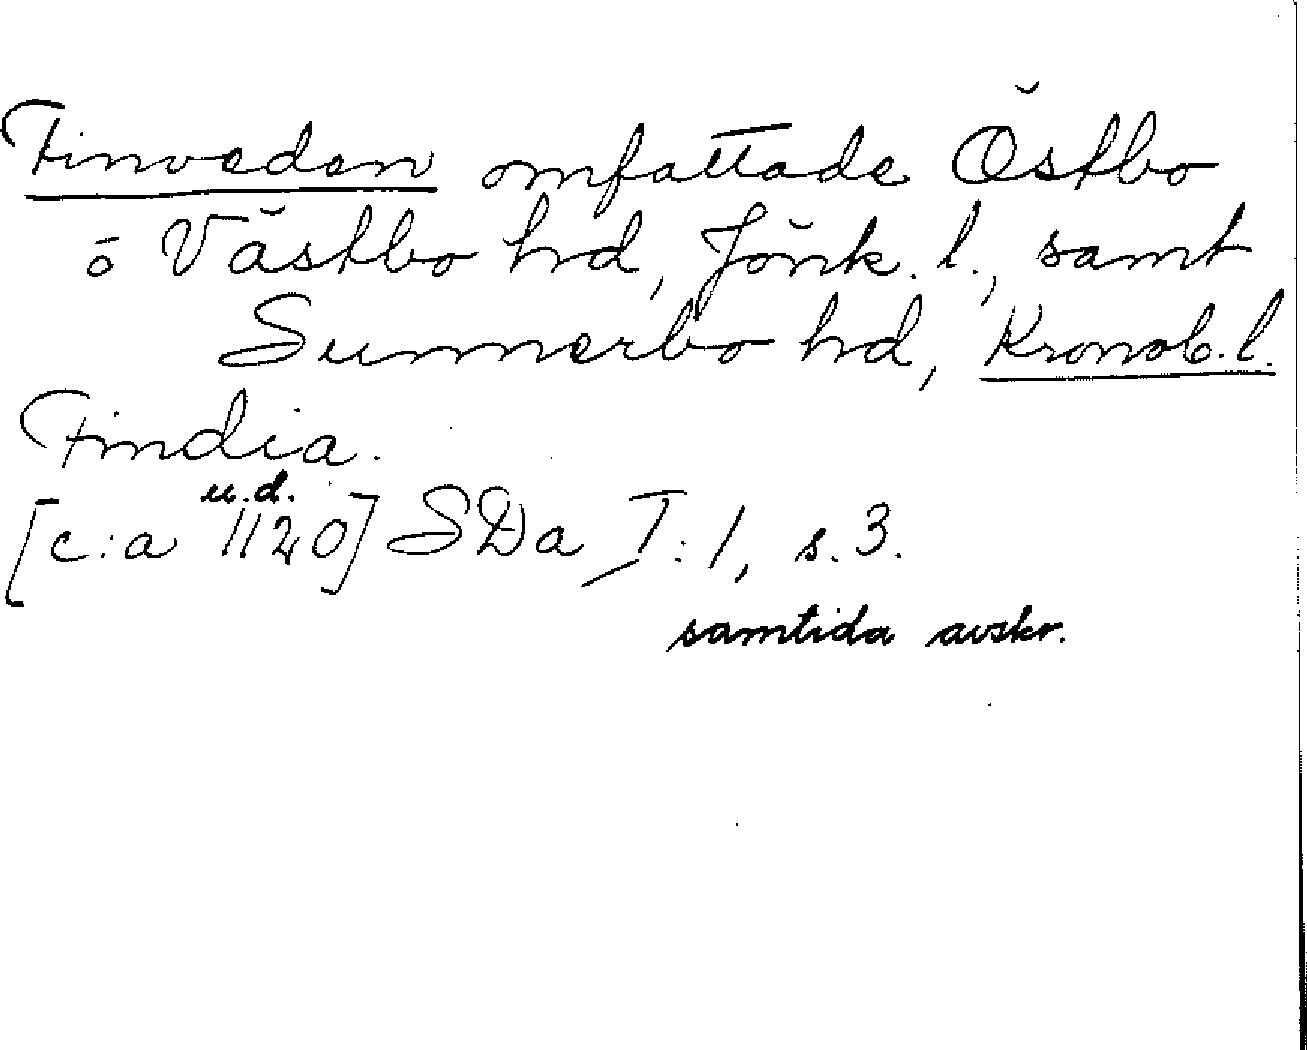 Finveden omfattade Östbo
o Västbo hd, Jönk. l., samt
Sunnerbo hd, Kronob. l.
Findia.
u.d.
[c:a 1120] SDa I:1, s. 3.
samtida avskr.